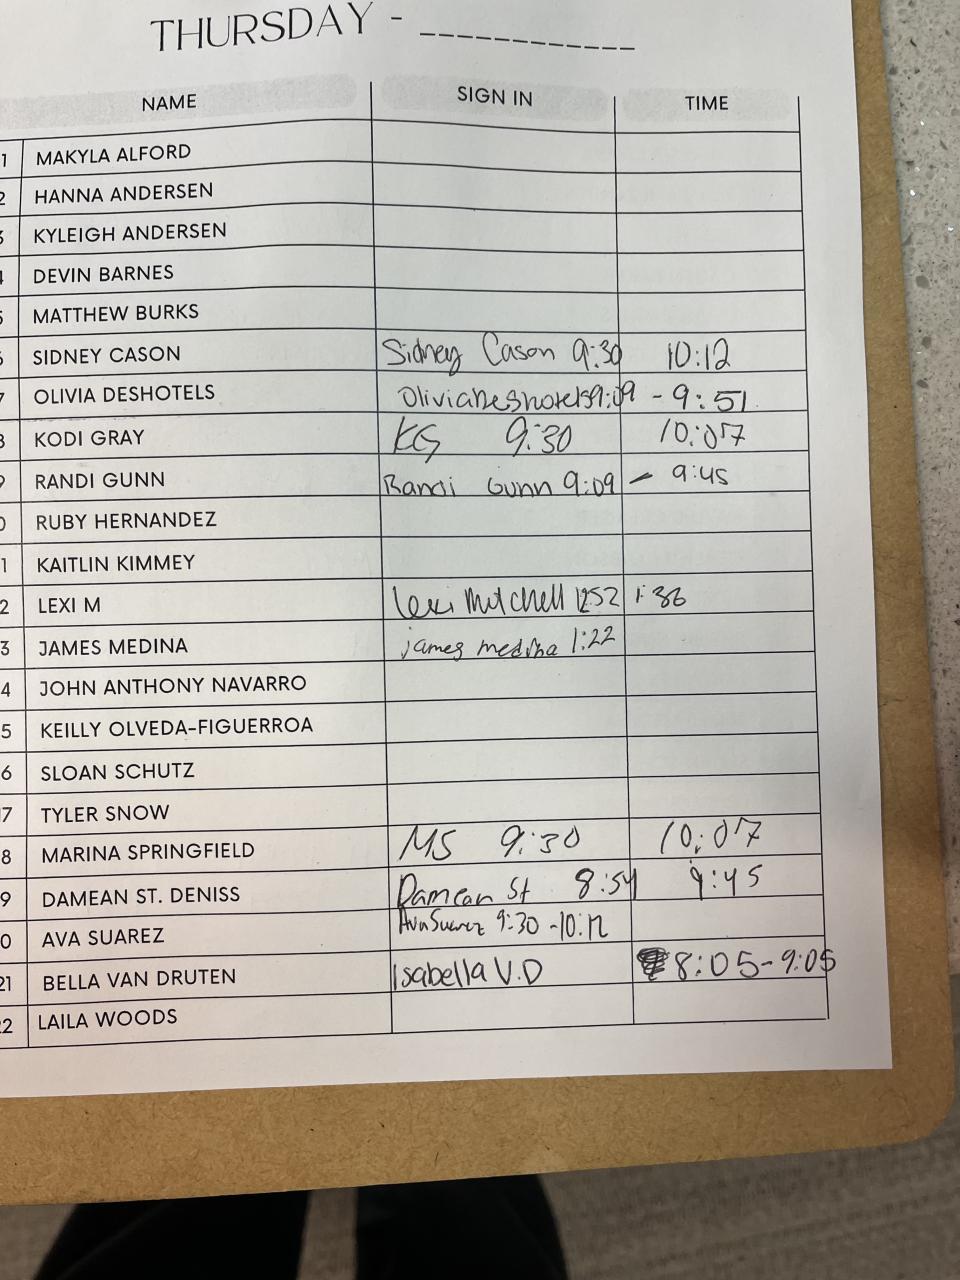 THURSDAY - ____________
NAME SIGN IN TIME
1 MAKYLA ALFORD
2 HANNA ANDERSEN
3 KYLEIGH ANDERSEN
4 DEVIN BARNES
5 MATTHEW BURKS
6 SIDNEY CASON Sidney Cason 9:30 10:12
7 OLIVIA DESHOTELS Olivia Deshotels 9:09 - 9:51
8 KODI GRAY KG 9:30 10:07
9 RANDI GUNN Randi Gunn 9:09 - 9:45
0 RUBY HERNANDEZ
1 KAITLIN KIMMEY
2 LEXI M Lexi Mitchell 1252 1:36
3 JAMES MEDINA james medina 1:22
4 JOHN ANTHONY NAVARRO
5 KEILLY OLVEDA-FIGUERROA
6 SLOAN SCHUTZ
17 TYLER SNOW
8 MARINA SPRINGFIELD MS 9:30 10:07
9 DAMEAN ST. DENISS Damean St 8:54 9:45
0 AVA SUAREZ Ava Suarez 9:30 -10:12
21 BELLA VAN DRUTEN Isabella V.D 8:05-9:05
22 LAILA WOODS